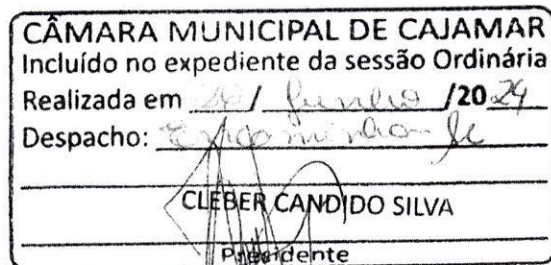 CÂMARA MUNICIPAL DE CAJAMAR
Incluído no expediente da sessão Ordinária
Realizada em / Junho /2024
Despacho: Encaminha-se
CLEBER CANDIDO SILVA
Presidente